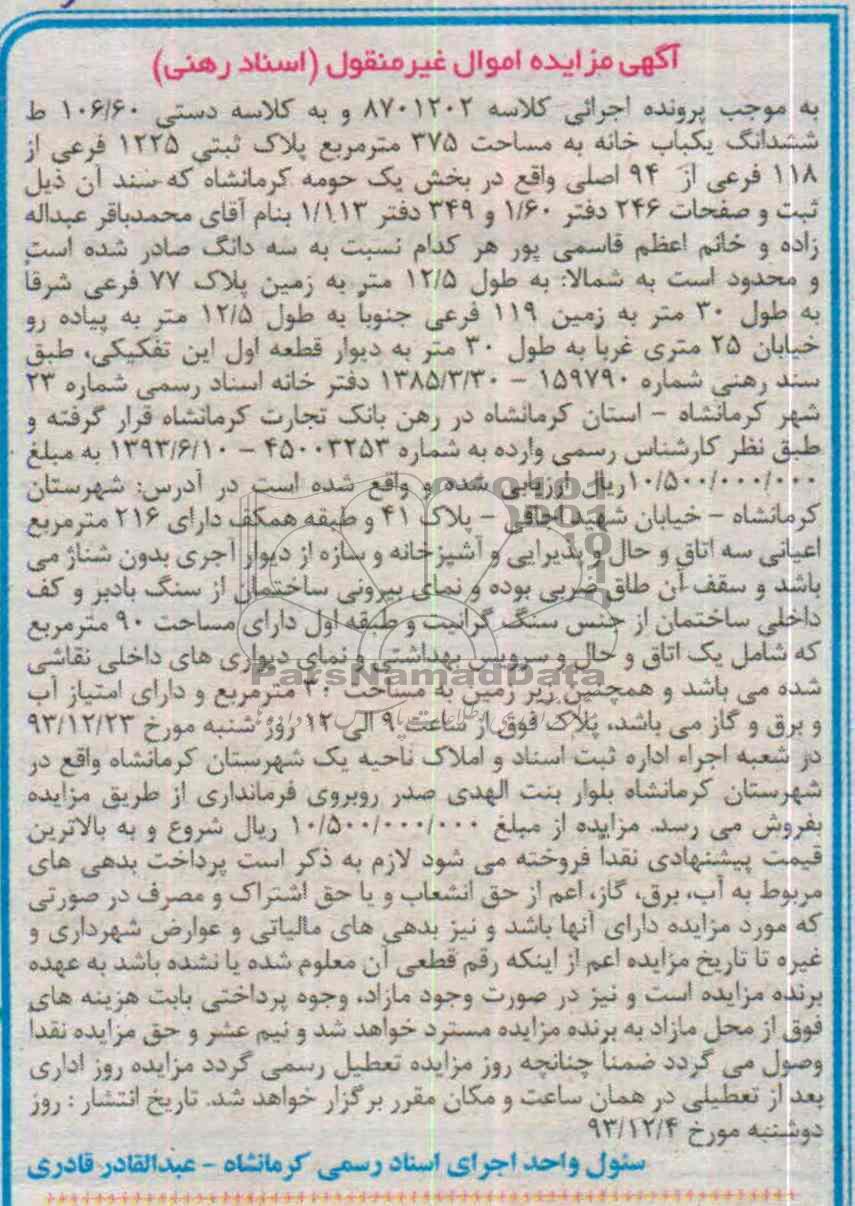 آگهی مزایده اموال غیرمنقول (اسناد رهنی)
به موجب پرونده اجرائی کلاسه ۸۷۰۱۲۰۲ و به کلاسه دستی ۱۰۶/۶۰ ط
ششدانگ یکباب خانه به مساحت ۳۷۵ مترمربع پلاک ثبتی ۱۲۲۵ فرعی از
۱۱۸ فرعی از ۹۴ اصلی واقع در بخش یک حومه کرمانشاه که سند آن ذیل
ثبت و صفحات ۲۴۶ دفتر ۱/۶۰ و ۳۴۹ دفتر ۱/۱۱۳ بنام آقای محمدباقر عبداله
زاده و خانم اعظم قاسمی پور هر کدام نسبت به سه دانگ صادر شده است
و محدود است به شمالا: به طول ۱۲/۵ متر به زمین پلاک ۷۷ فرعی شرقاً
به طول ۳۰ متر به زمین ۱۱۹ فرعی جنوباً به طول ۱۲/۵ متر به پیاده رو
خیابان ۲۵ متری غرباً به طول ۳۰ متر به دیوار قطعه اول این تفکیکی، طبق
سند رهنی شماره ۱۵۹۷۹۰ – ۱۳۸۵/۳/۳۰ دفتر خانه اسناد رسمی شماره ۲۳
شهر کرمانشاه – استان کرمانشاه در رهن بانک تجارت کرمانشاه قرار گرفته و
طبق نظر کارشناس رسمی وارده به شماره ۴۵۰۰۳۲۵۳ – ۱۳۹۳/۶/۱۰ به مبلغ
۱۰/۵۰۰/۰۰۰/۰۰۰ ریال ارزیابی شده و واقع شده است در آدرس: شهرستان
کرمانشاه – خیابان شهید احاقی – پلاک ۴۱ و طبقه همکف دارای ۲۱۶ مترمربع
اعیانی سه اتاق و حال و پذیرایی و آشپزخانه و سازه از دیوار آجری بدون شناژ می
باشد و سقف آن طاق ضربی بوده و نمای بیرونی ساختمان از سنگ بادبر و کف
داخلی ساختمان از جنس سنگ گرانیت و طبقه اول دارای مساحت ۹۰ مترمربع
که شامل یک اتاق و حال و سرویس بهداشتی و نمای دیواری های داخلی نقاشی
ParsNamadData
شده می باشد و همچنین زیر زمین به مساحت ۳۰ مترمربع و دارای امتیاز آب
و برق و گاز می باشد، پلاک فوق از ساعت ۹ الی ۱۲ روز شنبه مورخ ۹۳/۱۲/۲۳
در شعبه اجراء اداره ثبت اسناد و املاک ناحیه یک شهرستان کرمانشاه واقع در
شهرستان کرمانشاه بلوار بنت الهدی صدر روبروی فرمانداری از طریق مزایده
بفروش می رسد. مزایده از مبلغ ۱۰/۵۰۰/۰۰۰/۰۰۰ ریال شروع و به بالاترین
قیمت پیشنهادی نقداً فروخته می شود لازم به ذکر است پرداخت بدهی های
مربوط به آب، برق، گاز، اعم از حق انشعاب و یا حق اشتراک و مصرف در صورتی
که مورد مزایده دارای آنها باشد و نیز بدهی های مالیاتی و عوارض شهرداری و
غیره تا تاریخ مزایده اعم از اینکه رقم قطعی آن معلوم شده یا نشده باشد به عهده
برنده مزایده است و نیز در صورت وجود مازاد، وجوه پرداختی بابت هزینه های
فوق از محل مازاد به برنده مزایده مسترد خواهد شد و نیم عشر و حق مزایده نقداً
وصول می گردد ضمناً چنانچه روز مزایده تعطیل رسمی گردد مزایده روز اداری
بعد از تعطیلی در همان ساعت و مکان مقرر برگزار خواهد شد. تاریخ انتشار : روز
دوشنبه مورخ ۹۳/۱۲/۴
سئول واحد اجرای اسناد رسمی کرمانشاه – عبدالقادر قادری